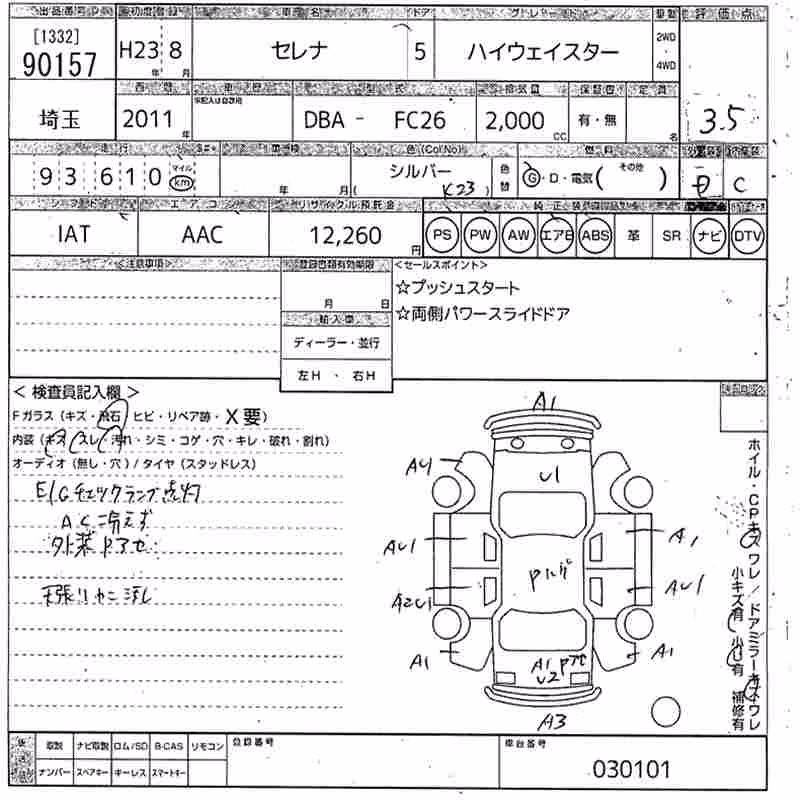 出品番号 初度登録 車名 ドア グレード 車型 評価点
[1332]
90157 H23 8 セレナ 5 ハイウェイスター 2WD ・ 4WD
年 月
西暦 車歴 型式 排気量 保証書 定員
未記入は自家用
埼玉 2011 年 DBA - FC26 2,000 CC 有・無 名 3.5
走行 車検 色 (Col No) 燃料 外装 内装
93610 マイル km 年 月 シルバー ( K23 ) 色替 G・D・電気( その他 ) D C
シフト エアコン リサイクル預託金 純正
IAT AAC 12,260 円 PS PW AW エアB ABS 革 SR ナビ DTV
<注意事項> 登録書類有効期限 <セールスポイント>
月 日
☆プッシュスタート
☆両側パワースライドドア
輸入車
ディーラー・並行
左H ・ 右H
< 検査員記入欄 >
Fガラス (キズ・飛石 ヒビ・リペア跡・X要)
内装 (キズ スレ・汚れ・シミ・コゲ・穴・キレ・破れ・割れ)
オーディオ (無し・穴) / タイヤ (スタッドレス)
E/Gチェックランプ点灯
AC冷えず
外装ドアセ
天張リヤニ汚レ
A1
U1
A4
AU1 A1
Pハゲ
A2U1 AU1
A1 A1 P U2 A1
A3
ホイル・CPキズ ワレ / ドアミラーキズ・ワレ
小キズ有 小U有 補修有
取説 ナビ取説 ロム/SD B-CAS リモコン 登録番号 車台番号
ナンバー スペアキー キーレス スマートキー
030101